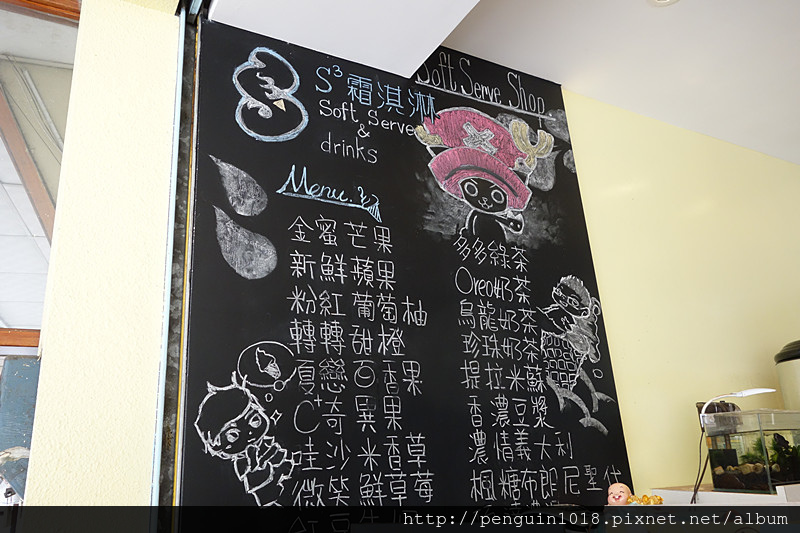 Soft Serve Shop
S³霜淇淋
Soft Serve
&
drinks
Menu.
金蜜芒果
新鮮蘋果
粉紅葡萄柚
轉轉甜橙
夏戀百香果
C⁺奇異果
哇沙米香草
微笑鮮草莓
紅豆
多多綠茶
Oreo奶茶
烏龍奶茶
珍珠奶茶
提拉米蘇
香濃豆漿
濃情義大利
楓糖布郎尼聖代
http://penguin1018.pixnet.net/album